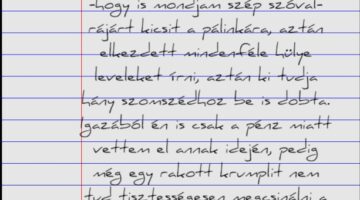 -hogy is mondjam szép szóval-
rájárt kicsit a pálinkára, aztán
elkezdett mindenféle hülye
leveleket írni, aztán ki tudja
hány szomszédhoz be is dobta.
Igazából én is csak a pénz miatt
vettem el annak idején, pedig
még egy rakott krumplit nem
tud tisztességesen megcsinálni a